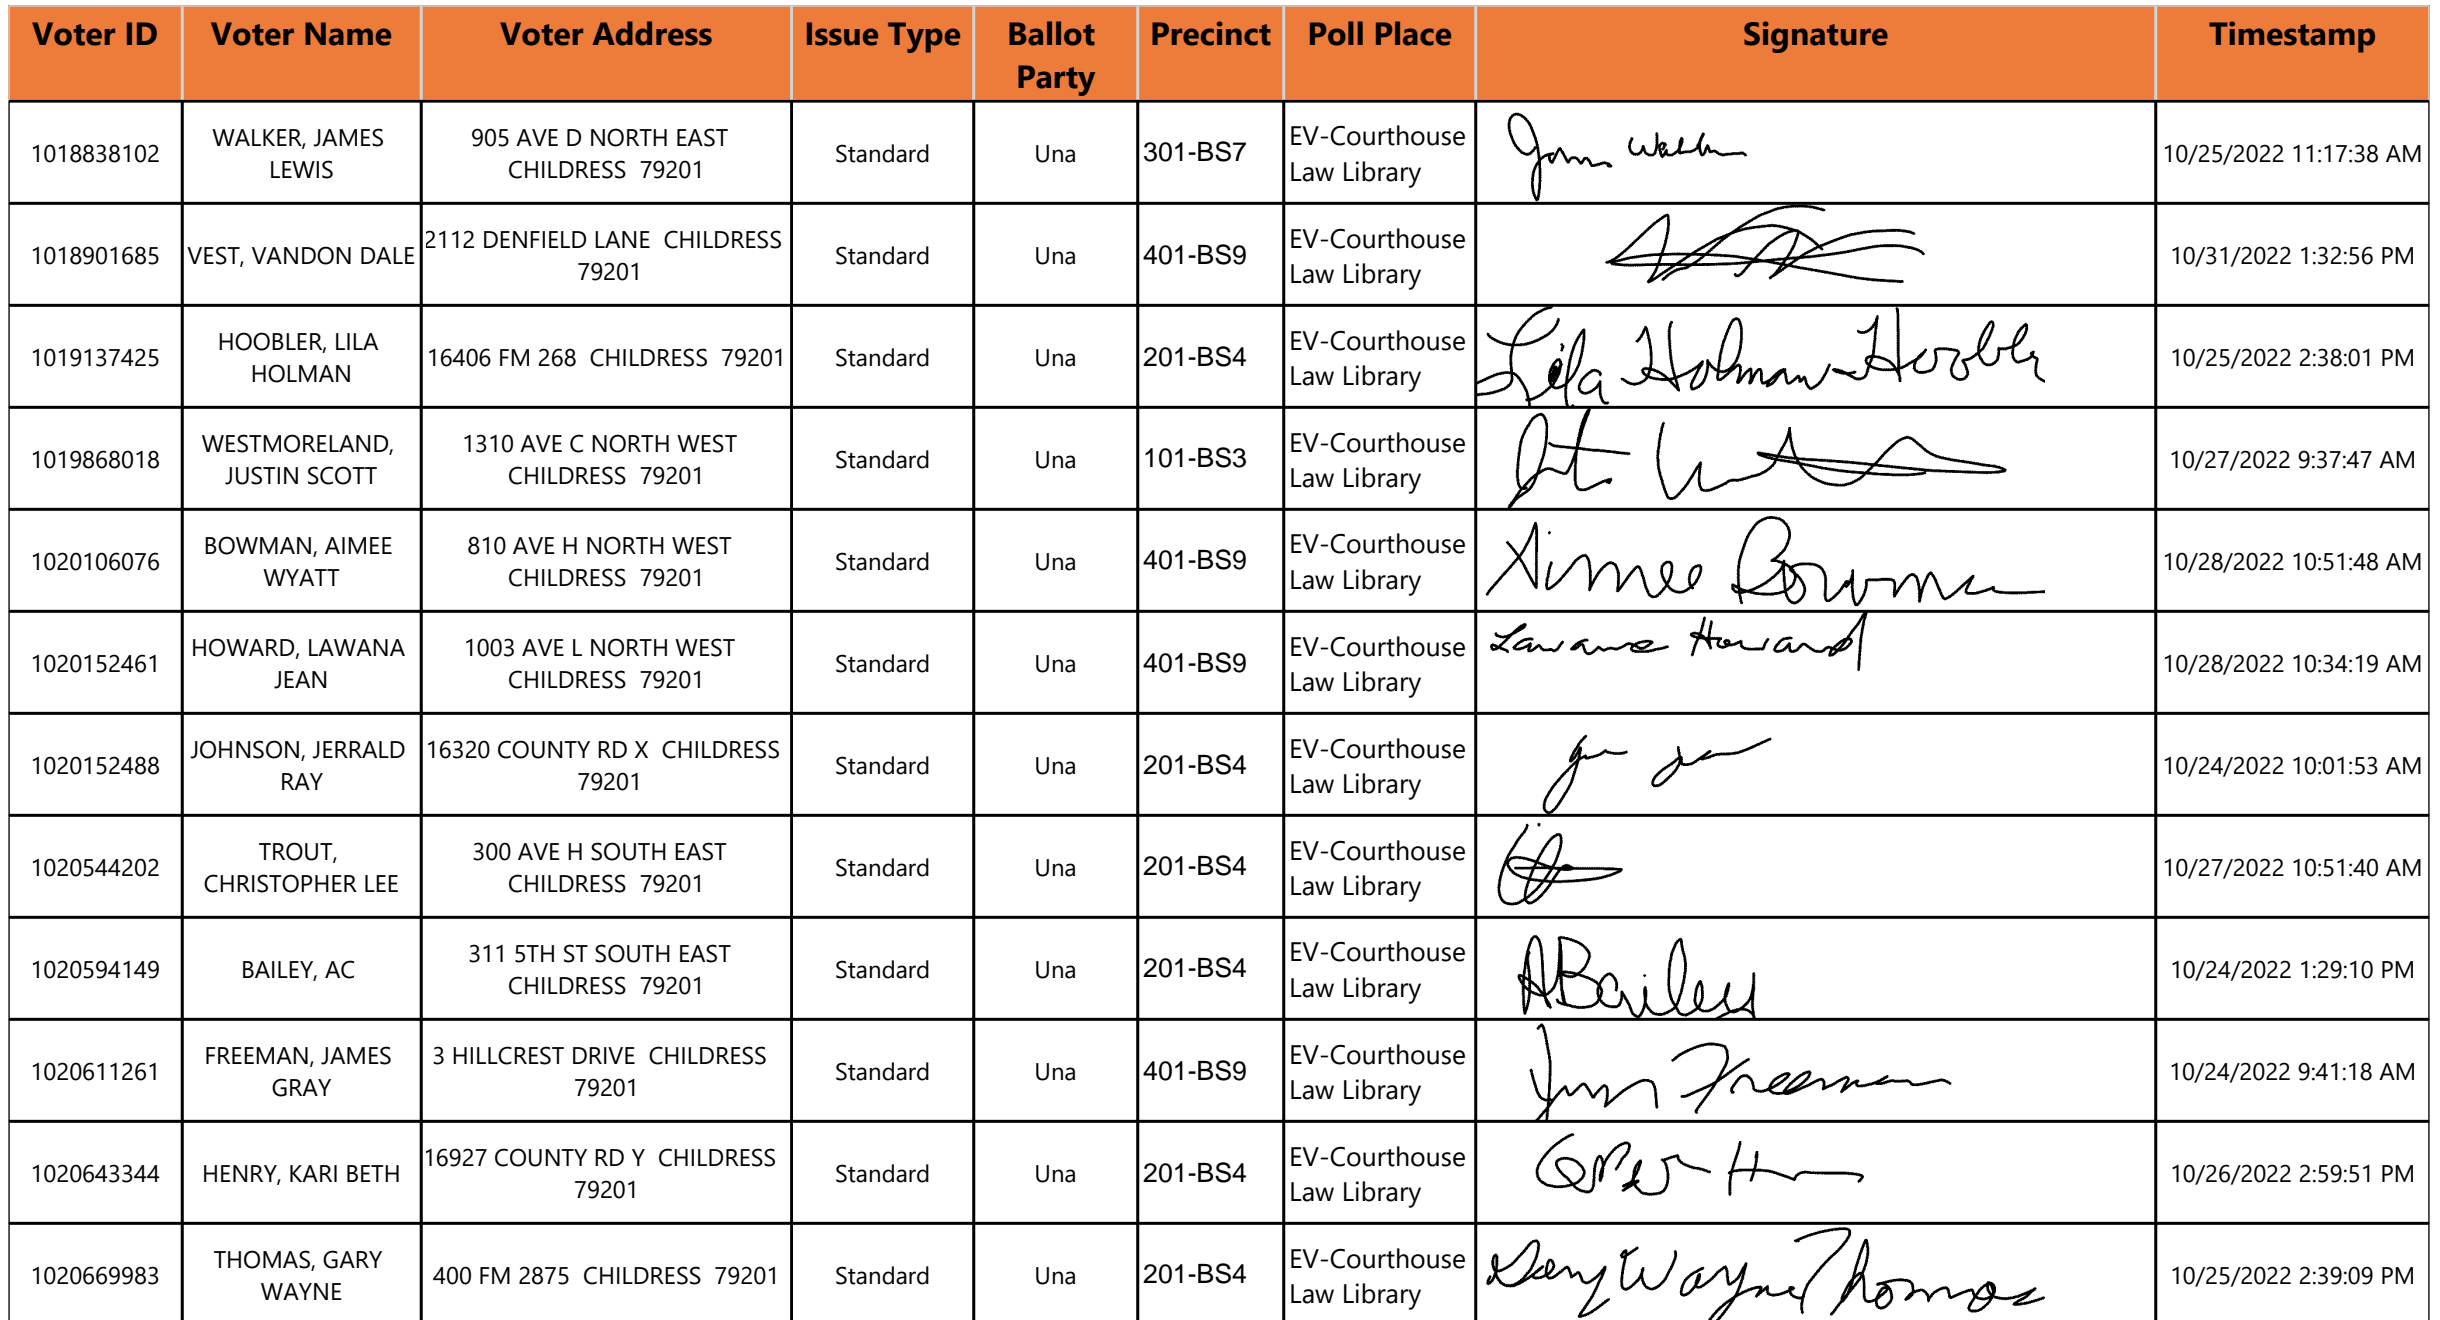 Voter ID Voter Name Voter Address Issue Type Ballot Party Precinct Poll Place Signature Timestamp
1018838102 WALKER, JAMES LEWIS 905 AVE D NORTH EAST CHILDRESS 79201 Standard Una 301-BS7 EV-Courthouse Law Library 10/25/2022 11:17:38 AM
1018901685 VEST, VANDON DALE 2112 DENFIELD LANE CHILDRESS 79201 Standard Una 401-BS9 EV-Courthouse Law Library 10/31/2022 1:32:56 PM
1019137425 HOOBLER, LILA HOLMAN 16406 FM 268 CHILDRESS 79201 Standard Una 201-BS4 EV-Courthouse Law Library Lila Holman-Hoobler 10/25/2022 2:38:01 PM
1019868018 WESTMORELAND, JUSTIN SCOTT 1310 AVE C NORTH WEST CHILDRESS 79201 Standard Una 101-BS3 EV-Courthouse Law Library 10/27/2022 9:37:47 AM
1020106076 BOWMAN, AIMEE WYATT 810 AVE H NORTH WEST CHILDRESS 79201 Standard Una 401-BS9 EV-Courthouse Law Library Aimee Bowman 10/28/2022 10:51:48 AM
1020152461 HOWARD, LAWANA JEAN 1003 AVE L NORTH WEST CHILDRESS 79201 Standard Una 401-BS9 EV-Courthouse Law Library Lawana Howard 10/28/2022 10:34:19 AM
1020152488 JOHNSON, JERRALD RAY 16320 COUNTY RD X CHILDRESS 79201 Standard Una 201-BS4 EV-Courthouse Law Library 10/24/2022 10:01:53 AM
1020544202 TROUT, CHRISTOPHER LEE 300 AVE H SOUTH EAST CHILDRESS 79201 Standard Una 201-BS4 EV-Courthouse Law Library 10/27/2022 10:51:40 AM
1020594149 BAILEY, AC 311 5TH ST SOUTH EAST CHILDRESS 79201 Standard Una 201-BS4 EV-Courthouse Law Library A Bailey 10/24/2022 1:29:10 PM
1020611261 FREEMAN, JAMES GRAY 3 HILLCREST DRIVE CHILDRESS 79201 Standard Una 401-BS9 EV-Courthouse Law Library Freeman 10/24/2022 9:41:18 AM
1020643344 HENRY, KARI BETH 16927 COUNTY RD Y CHILDRESS 79201 Standard Una 201-BS4 EV-Courthouse Law Library 10/26/2022 2:59:51 PM
1020669983 THOMAS, GARY WAYNE 400 FM 2875 CHILDRESS 79201 Standard Una 201-BS4 EV-Courthouse Law Library Gary Wayne Thomas 10/25/2022 2:39:09 PM